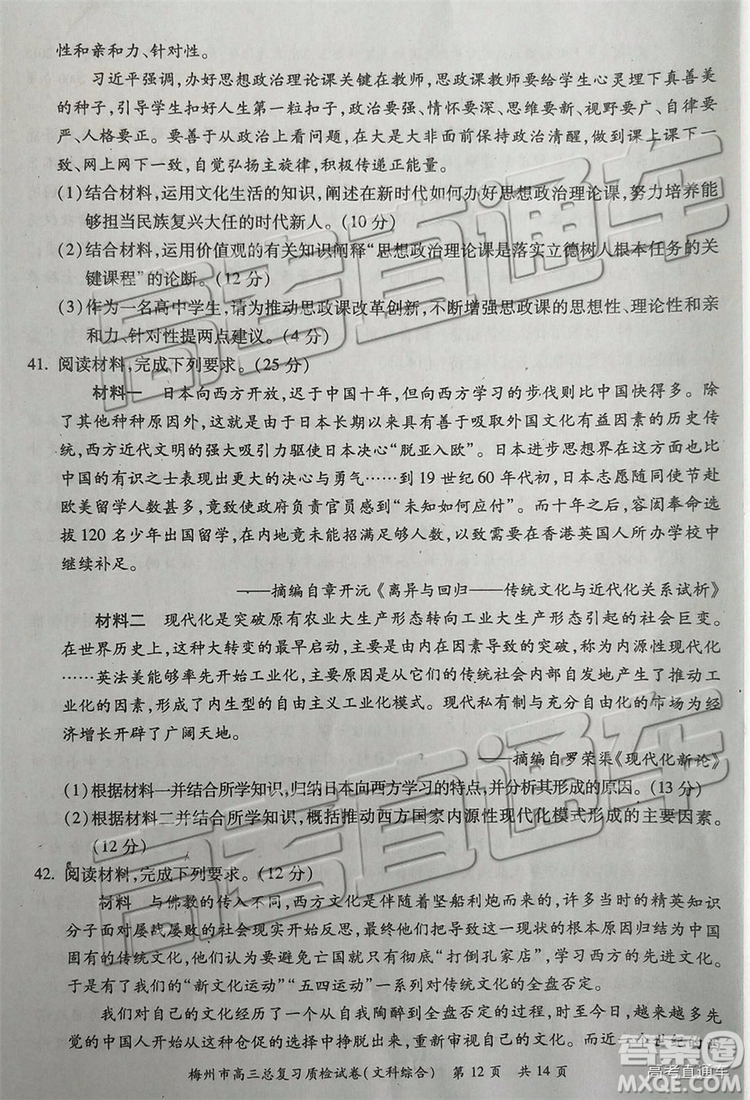 性和亲和力、针对性。
习近平强调,办好思想政治理论课关键在教师,思政课教师要给学生心灵埋下真善美
的种子,引导学生扣好人生第一粒扣子,政治要强、情怀要深、思维要新、视野要广、自律要
严、人格要正。要善于从政治上看问题,在大是大非面前保持政治清醒,做到课上课下一
致、网上网下一致,自觉弘扬主旋律,积极传递正能量。
(1)结合材料,运用文化生活的知识,阐述在新时代如何办好思想政治理论课,努力培养能
够担当民族复兴大任的时代新人。(10 分)
(2)结合材料,运用价值观的有关知识阐释“思想政治理论课是落实立德树人根本任务的关
键课程”的论断。(12 分)
(3)作为一名高中学生,请为推动思政课改革创新,不断增强思政课的思想性、理论性和亲
和力、针对性提两点建议。(4 分)
41. 阅读材料,完成下列要求。(25 分)
材料一 日本向西方开放,迟于中国十年,但向西方学习的步伐则比中国快得多。除
了其他种种原因外,这就是由于日本长期以来具有善于吸取外国文化有益因素的历史传
统,西方近代文明的强大吸引力驱使日本决心“脱亚入欧”。日本进步思想界在这方面也比
中国的有识之士表现出更大的决心与勇气……到 19 世纪 60 年代初,日本志愿随同使节赴
欧美留学人数甚多,竟致使政府负责官员感到“未知如何应付”。而十年之后,容闳奉命选
拔 120 名少年出国留学,在内地竟未能招满足够人数,以致需要在香港英国人所办学校中
继续补足。
——摘编自章开沅《离异与回归——传统文化与近代化关系试析》
材料二 现代化是突破原有农业大生产形态转向工业大生产形态引起的社会巨变。
在世界历史上,这种大转变的最早启动,主要是由内在因素导致的突破,称为内源性现代化
……英法美能够率先开始工业化,主要原因是从它们的传统社会内部自发地产生了推动工
业化的因素,形成了内生型的自由主义工业化模式。现代私有制与充分自由化的市场为经
济增长开辟了广阔天地。
——摘编自罗荣渠《现代化新论》
(1)根据材料一并结合所学知识,归纳日本向西方学习的特点,并分析其形成的原因。(13 分)
(2)根据材料二并结合所学知识,概括推动西方国家内源性现代化模式形成的主要因素。
(12 分)
42. 阅读材料,完成下列要求。(12 分)
材料 与佛教的传入不同,西方文化是伴随着坚船利炮而来的,当时的精英知识
分子面对屡战屡败的社会现实开始反思,最终他们把导致这一现状的根本原因归结为中国
固有的传统文化,进而认为要避免亡国就只能“打倒孔家店”,学习西方的先进文化。
于是有了我们的“新文化运动”“五四运动”一系列对传统文化的全盘否定。
我们对自己的文化经历了一个从自我陶醉到全盘否定的过程,时至今日,越来越多先
觉的中国人开始从这种仓促的选择中挣脱出来,重新审视自己的文化。而近一个世纪的
梅州市高三总复习质检试卷(文科综合) 第 12 页 共 14 页
高考直通车
高考直通车
答案圈
MXQE.COM
高考直通车